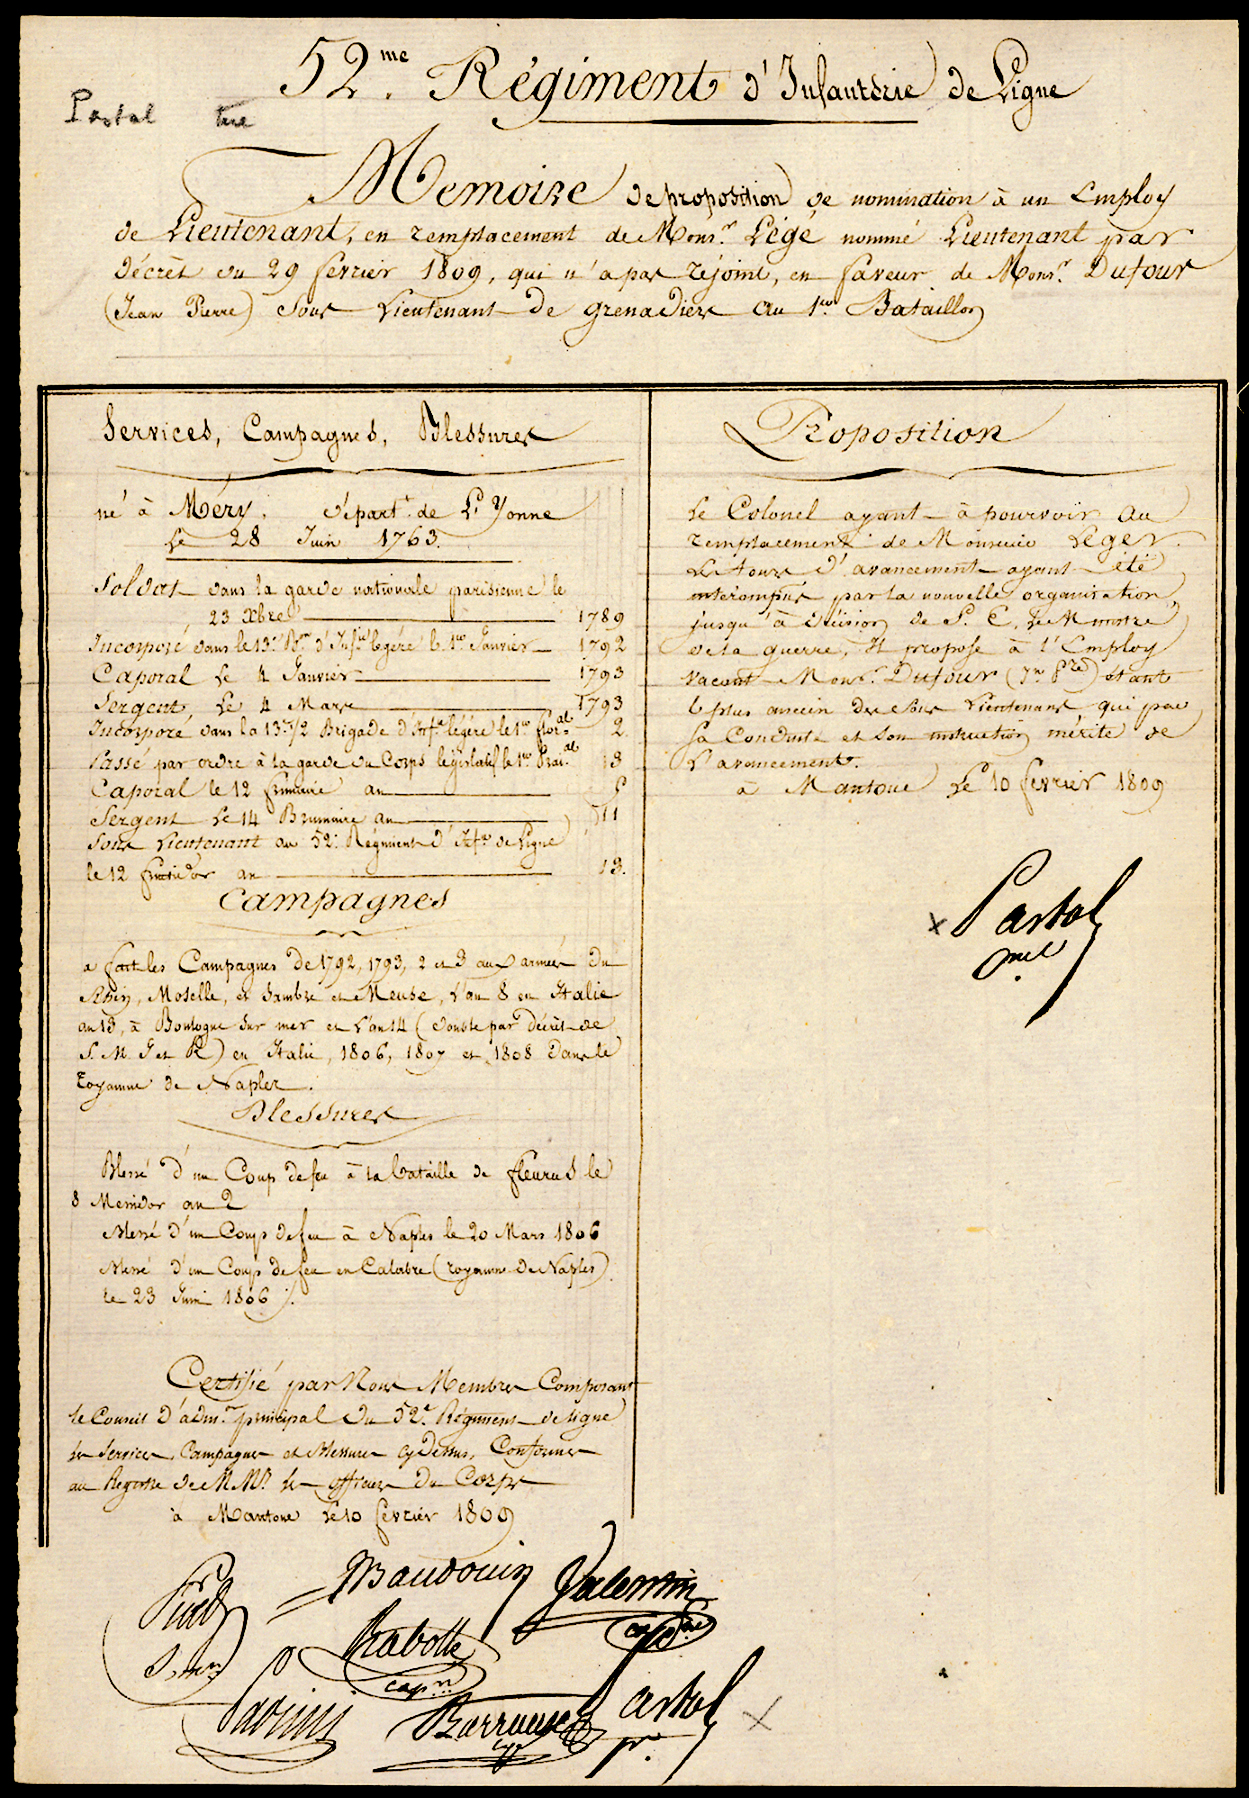 52.me Régiment d'Infanterie de Ligne
Pastal
Memoire de proposition de nomination à un Employ
de Lieutenant, en remplacement de Mons.r Légé nommé Lieutenant par
décrèt du 29 fevrier 1809, qui n'a pas réjoint, en faveur de Mons.r Dufour
(Jean Pierre) Sous Lieutenant de grenadiers au 1.er Bataillon
Services, Campagnes, Blessures
né à Méry, départ.t de L'Yonne
Le 28 Juin 1763.
Soldat dans la garde nationale parisienne le
23 Xbre 1789
Incorporé dans le 13.e B.on d'Inf.ie légère le 1.er Janvier 1792
Caporal Le 4 Janvier 1793
Sergent Le 4 Mars 1793
Incorporé dans la 13.e 1/2 Brigade d'Inf.ie légère le 1.er flor.al 2.
Passé par ordre à la garde du Corps législatif le 1.er Prai.al 3
Caporal le 12 frimaire an 5
Sergent Le 14 Brumaire an 11
Sous Lieutenant au 52.e Régiment d'Inf.ie de Ligne
le 12 fructidor an 13.
Campagnes
a fait les Campagnes de 1792, 1793, 2 et 3 aux armées du
Rhin, Moselle, et Sambre et Meuse, L'an 8 en Italie
an 13, à Boulogne sur mer et L'an 14 (double par décrèt de
S. M. I et R) en Italie, 1806, 1807 et 1808 dans le
royaume de Naples.
Blessures
Blessé d'un Coup de feu à la bataille de fleurus le
8 Messidor an 2
Blessé d'un Coup de feu à Naples le 20 Mars 1806
Blessé d'un Coup de feu en Calabre (royaume de Naples)
le 23 Juin 1806.
Certifié par Nous Membres Composant
le Conseil d'adm.on principal du 52.e Régiment de ligne
les Services, Campagnes et Blessures cy dessus, Conformes
au Registre de MM.rs les officiers du Corps
à Mantoue le 10 fevrier 1809
Baudouin Valentin
cap.ne
Rabotte
cap.ne
Pastol
Proposition
Le Colonel ayant à pourvoir au
remplacement de Monsieur Leger.
Le tour d'avancement ayant été
interompus par la nouvelle organisation,
jusqu'à décision de S. E. Le Ministre
de la guerre, Il propose à l'Employ
vacant Mons.r Dufour (Jn Pre) étant
le plus ancien des Sous Lieutenans qui par
sa Conduite et son instruction mérite de
L'avancement.
à Mantoue Le 10 fevrier 1809
x Pastol